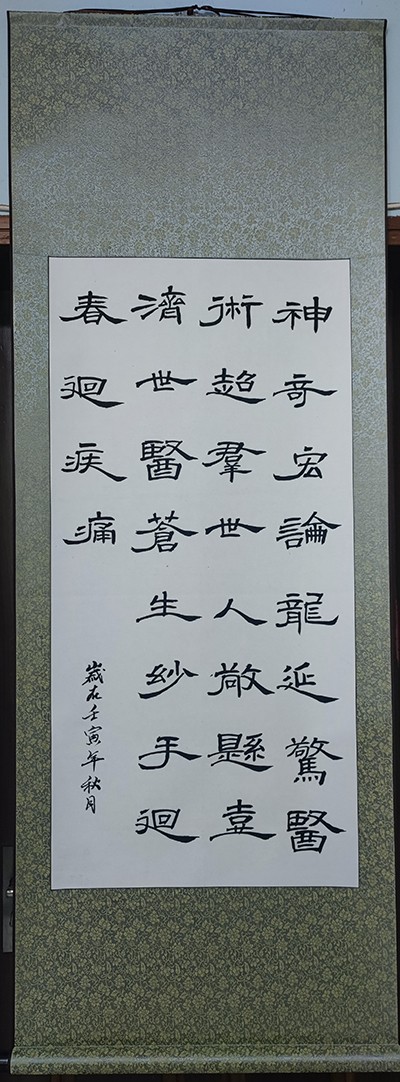 神奇宏論龍延驚醫
術超羣世人敞懸壺
濟世醫蒼生紗手迴
春迴疾痛
歲在壬寅年秋月